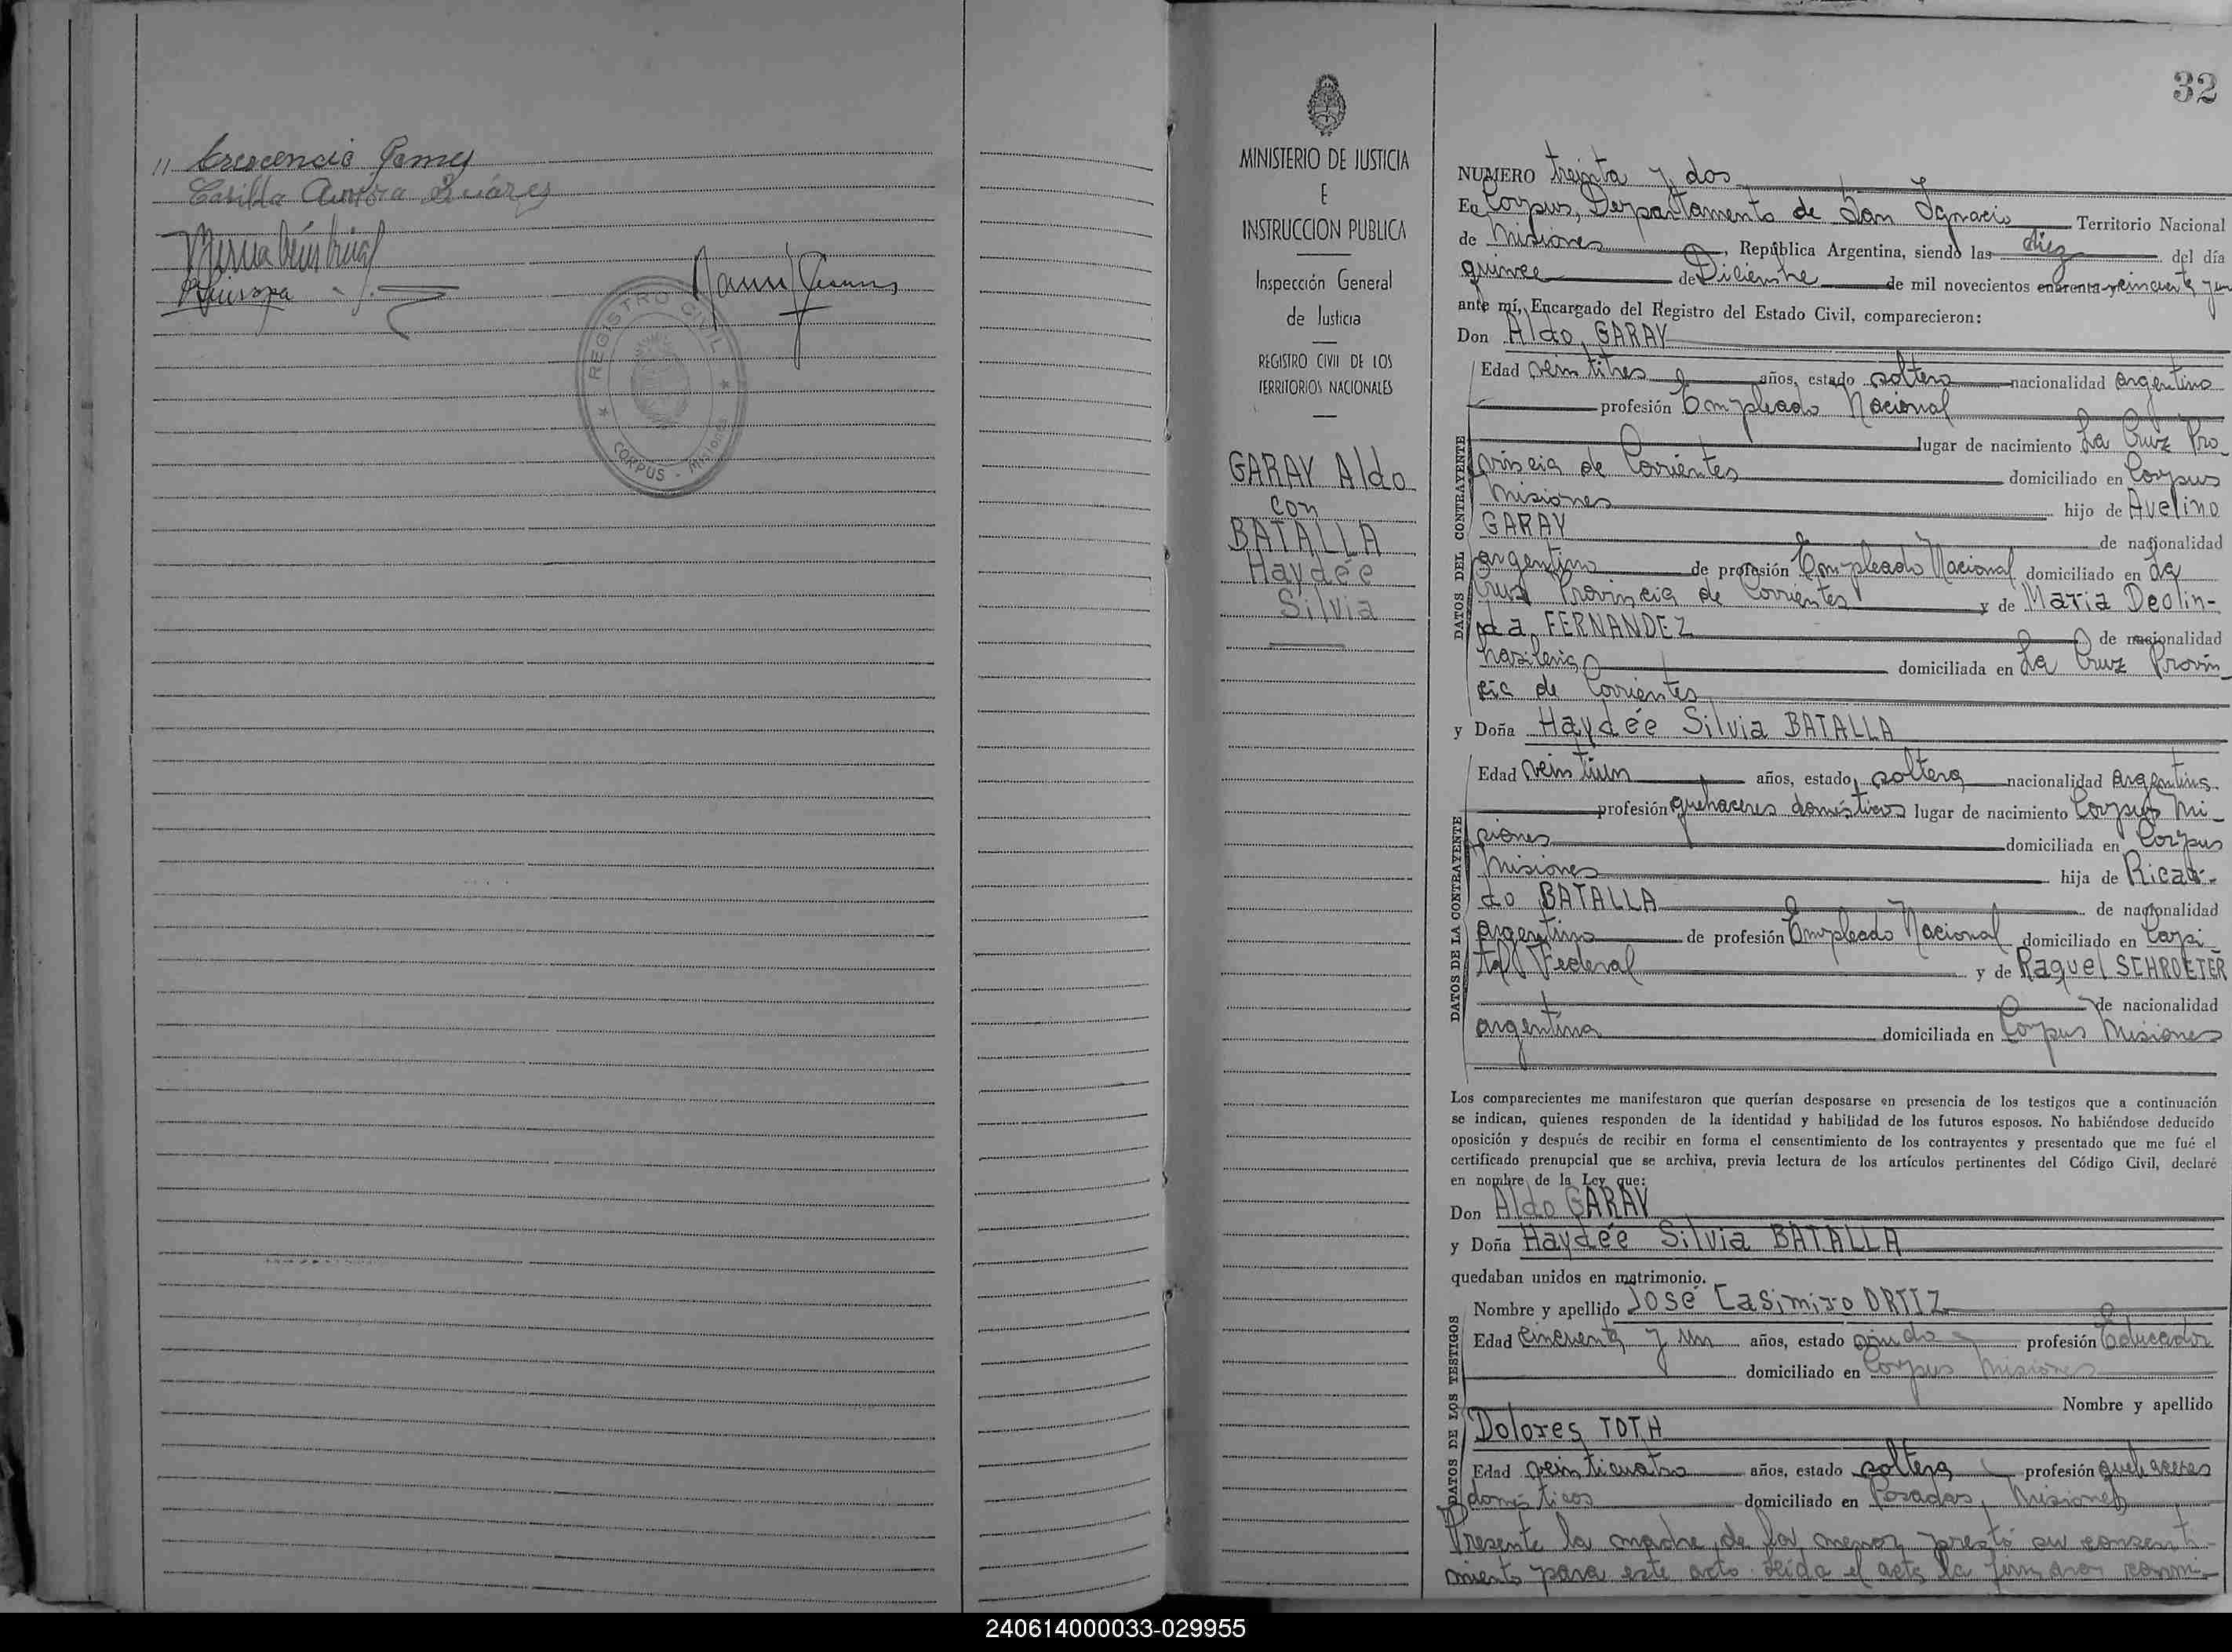 " Crescencio Gomez
Casilda Aurora Suárez
REGISTRO CIVIL
CORPUS - Misiones
32
MINISTERIO DE JUSTICIA
E
INSTRUCCION PUBLICA
Inspección General
de Justicia
REGISTRO CIVIL DE LOS
TERRITORIOS NACIONALES
GARAY Aldo
con
BATALLA
Haydée
Silvia
NUMERO treinta y dos
En Corpus, Departamento de San Ignacio Territorio Nacional
de Misiones, República Argentina, siendo las diez del día
quince de Diciembre de mil novecientos cuarenta y cincuenta y un
ante mí, Encargado del Registro del Estado Civil, comparecieron:
Don Aldo GARAY
Edad veintitres años, estado soltero nacionalidad argentino
profesión Empleado Nacional
lugar de nacimiento La Cruz Pro-
vincia de Corrientes domiciliado en Corpus
Misiones hijo de Avelino
GARAY de nacionalidad
argentino de profesión Empleado Nacional domiciliado en La
Cruz Provincia de Corrientes y de Maria Deolin-
da FERNANDEZ de nacionalidad
brasilena domiciliada en La Cruz Provin-
cia de Corrientes
y Doña Haydée Silvia BATALLA
Edad veintiun años, estado soltera nacionalidad argentina
profesión quehaceres domésticos lugar de nacimiento Corpus Mi-
siones domiciliada en Corpus
Misiones hija de Ricar-
do BATALLA de nacionalidad
argentino de profesión Empleado Nacional domiciliado en Capi
tal Federal y de Raquel SCHROETER
de nacionalidad
argentina domiciliada en Corpus Misiones
Los comparecientes me manifestaron que querían desposarse en presencia de los testigos que a continuación
se indican, quienes responden de la identidad y habilidad de los futuros esposos. No habiéndose deducido
oposición y después de recibir en forma el consentimiento de los contrayentes y presentado que me fué el
certificado prenupcial que se archiva, previa lectura de los artículos pertinentes del Código Civil, declaré
en nombre de la Ley que:
Don Aldo GARAY
y Doña Haydée Silvia BATALLA
quedaban unidos en matrimonio.
Nombre y apellido José Casimiro ORTIZ
Edad cincuenta y un años, estado viudo profesión Educador
domiciliado en Corpus Misiones
Nombre y apellido
Dolores TOTH
Edad veinticuatro años, estado soltera profesión quehaceres
domésticos domiciliado en Posadas, Misiones
Presente la madre de la menor prestó su consenti-
miento para este acto. Leída el acta la firmaron conmi-
DATOS DEL CONTRAYENTE
DATOS DE LA CONTRAYENTE
DATOS DE LOS TESTIGOS
240614000033-029955